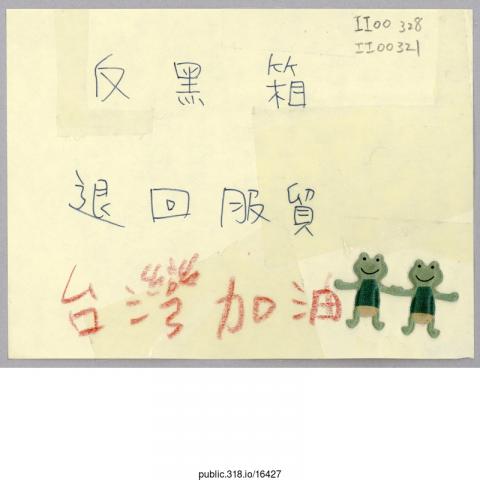 II00 328
II00321
反黑箱
退回服貿
台灣加油
public.318.io/16427